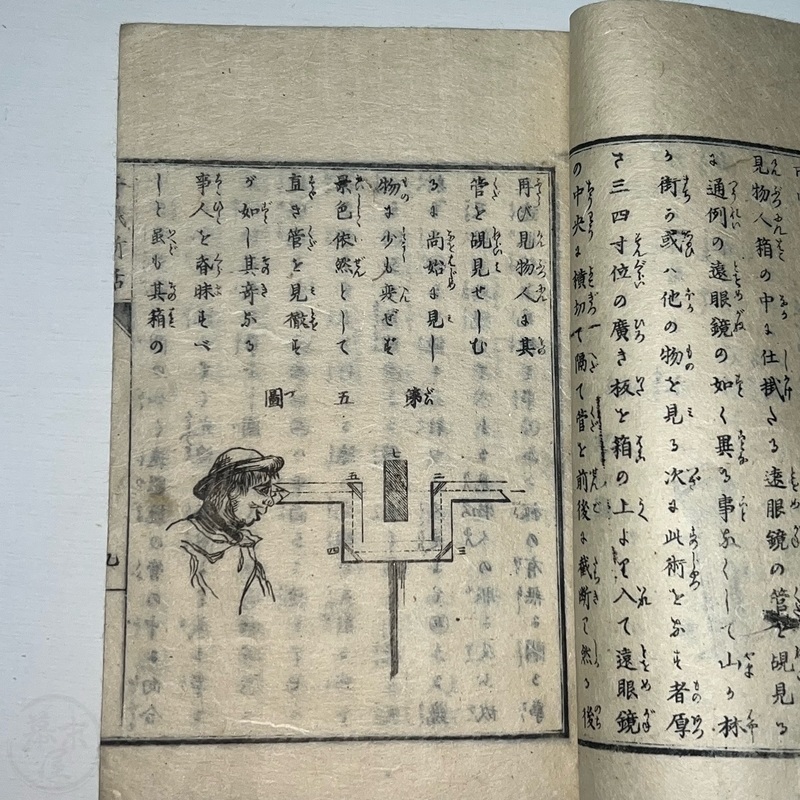 見物人箱の中に仕掛たる遠眼鏡の管を覘見る
に通例の遠眼鏡の如く異る事なくして山か林
か街か或ハ他の物を見る次に此術を為す者厚
さ三四寸位の廣き板を箱の上より入て遠眼鏡
の中央に横切て隔て管を前後に截断て然る後
再び見物人に其
管を覘見せしむ
るに尚始に見し
物に少も変ぜず
景色依然として
直き管を見徹す
が如し其奇なる
事人を昧すべ
しと雖も其箱の
第五圖
七
二
五
三
四
九